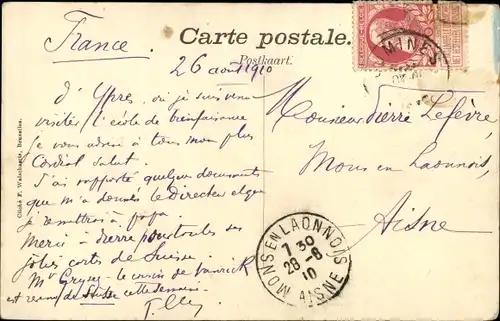 France
Carte postale.
Postkaart.
26 août 1910
MINES
d'Ypres, où je suis venu
visiter l'école de bienfaisance
je vous adresse à tous mon plus
Cordial salut.
J'ai rapporté quelques documents
que m'a donnés le Directeur et que
je remettrai à papa.
Merci à Pierre pour toutes ses
jolies cartes de Suisse
Mr le cousin de
est revenu de Suisse cette semaine.
Monsieur Pierre Lefèvre,
Mons en Laonnois,
Aisne
MONS EN LAONNOIS
7 30
28 - 8
10
AISNE
Cliché F. Walschaerts, Bruxelles.